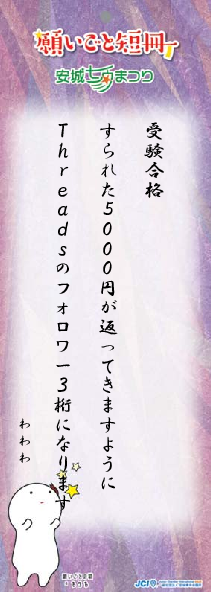 願いごと短冊
安城七夕まつり
受験合格
すられた5000円が返ってきますように
Threadsのフォロワー3桁になります
わわわ
願いごと短冊
JCI